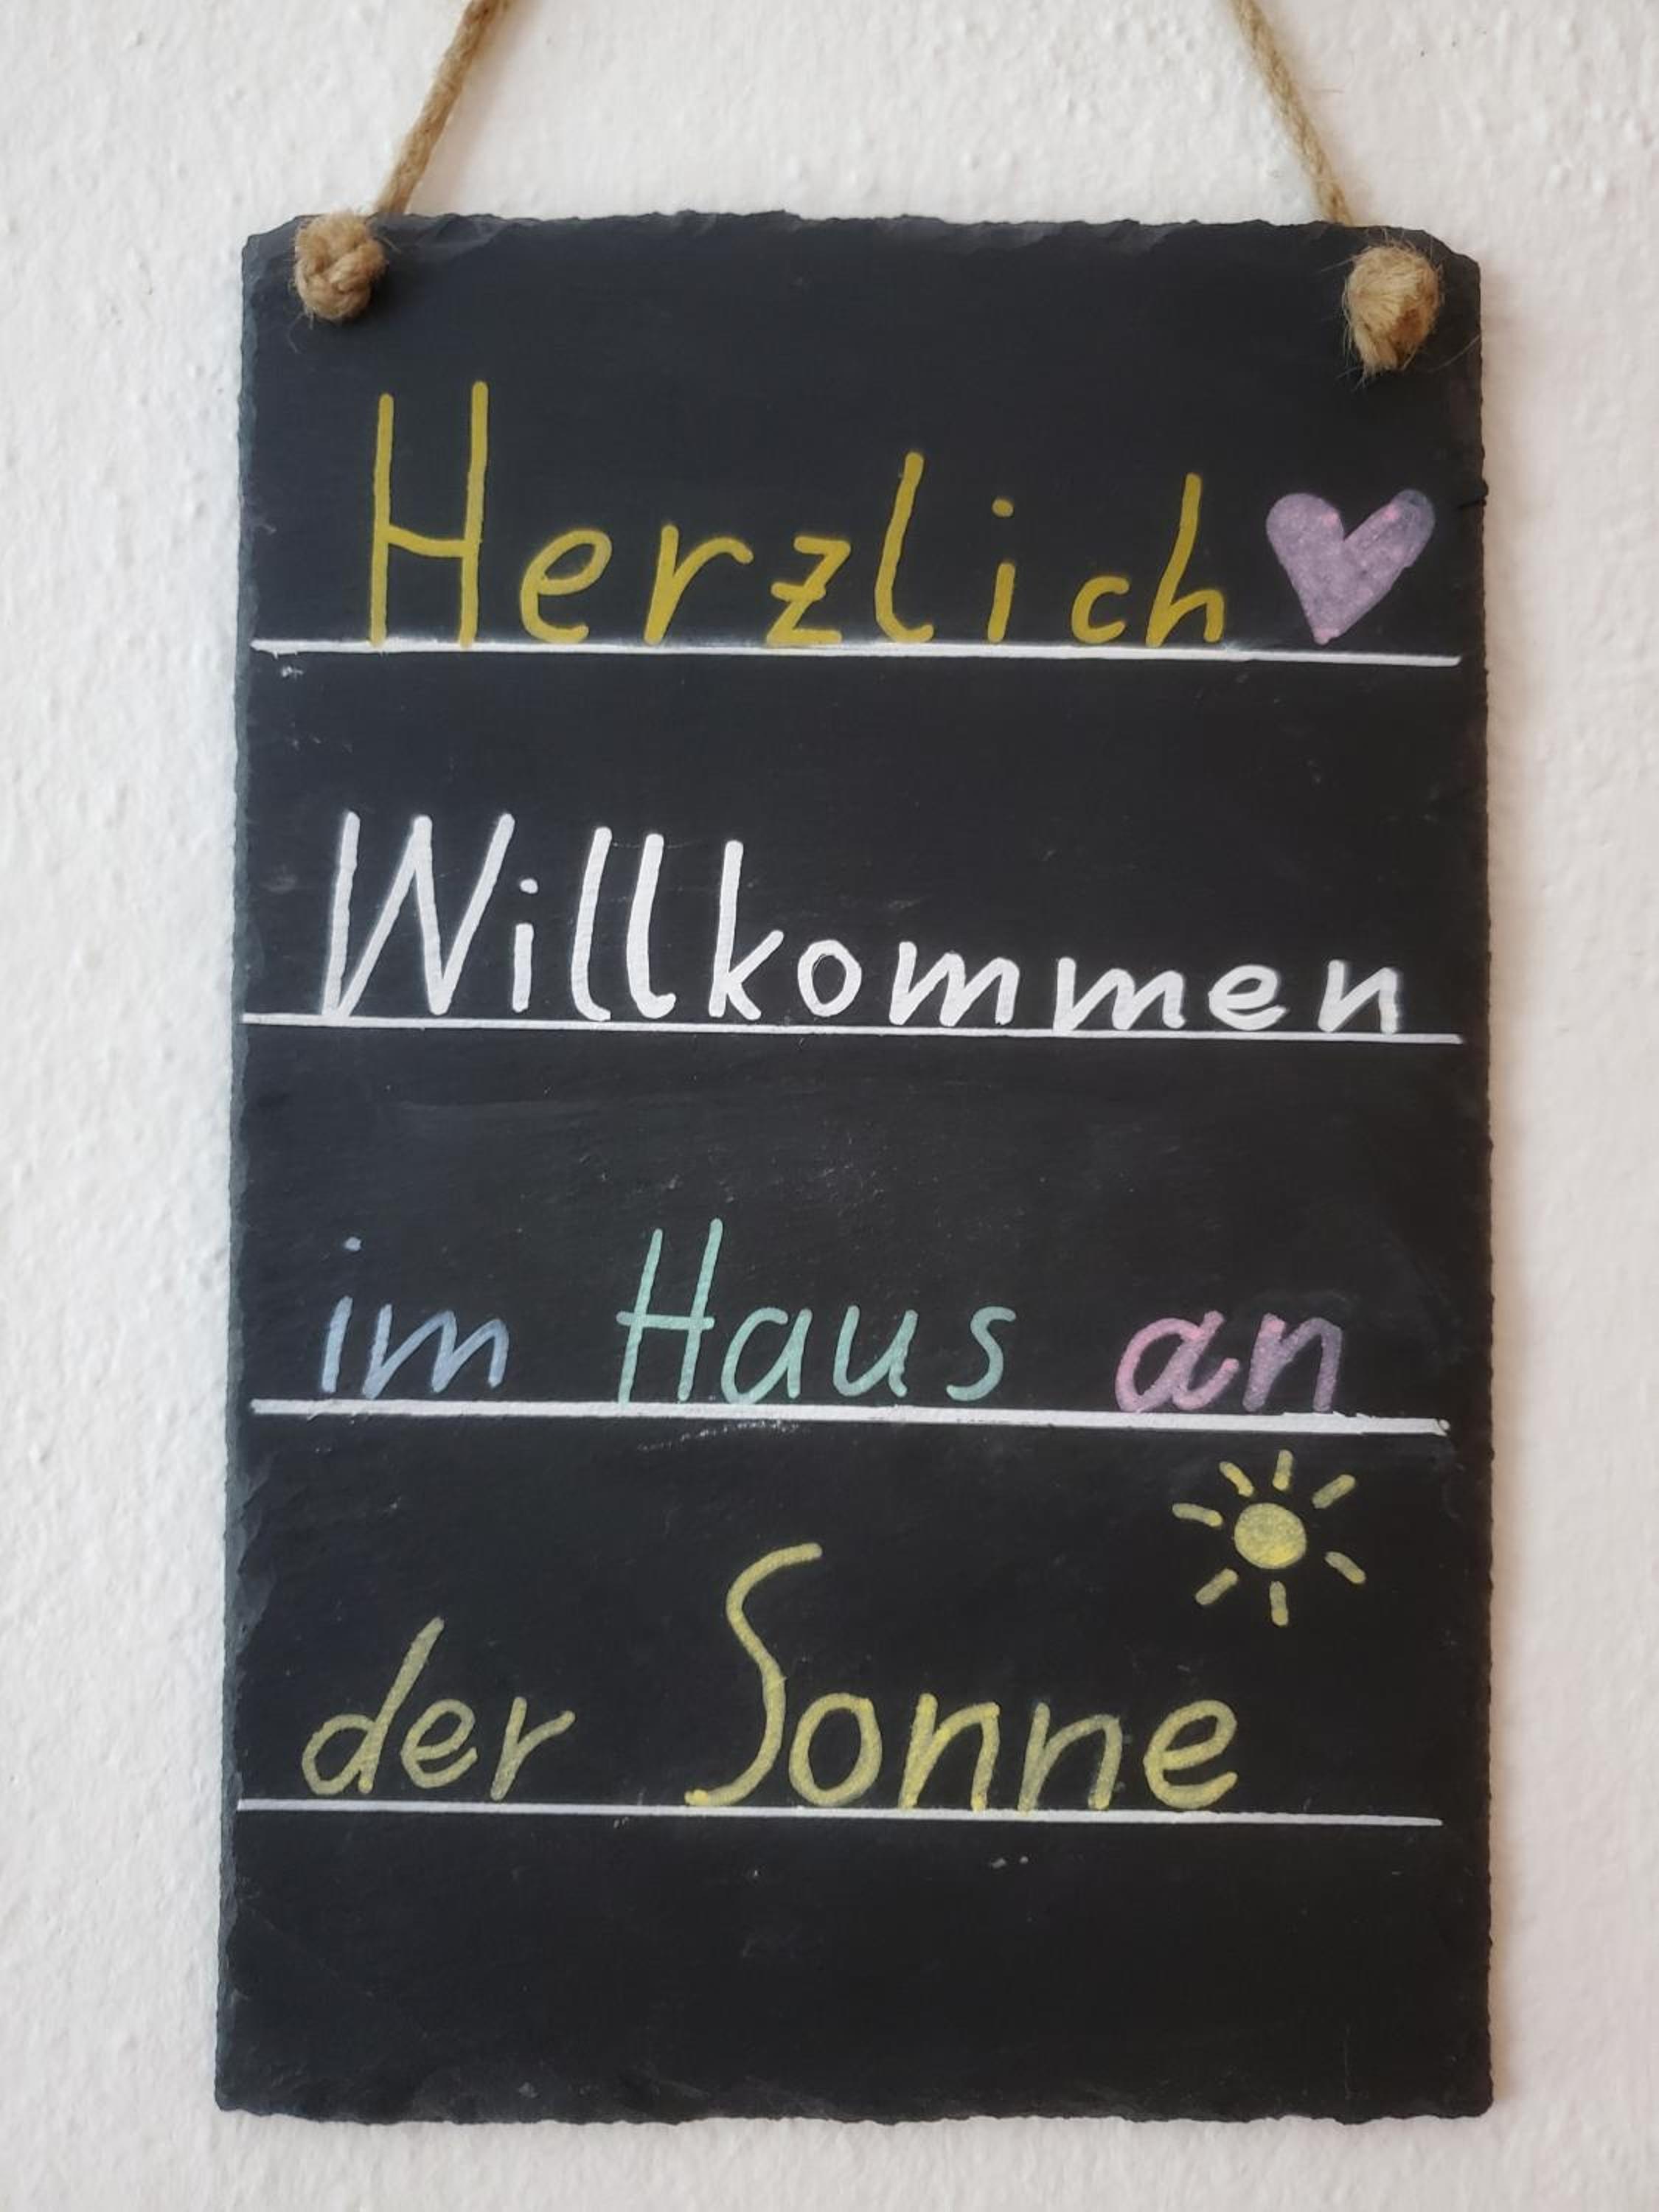 Herzlich
Willkommen
im Haus an
der Sonne